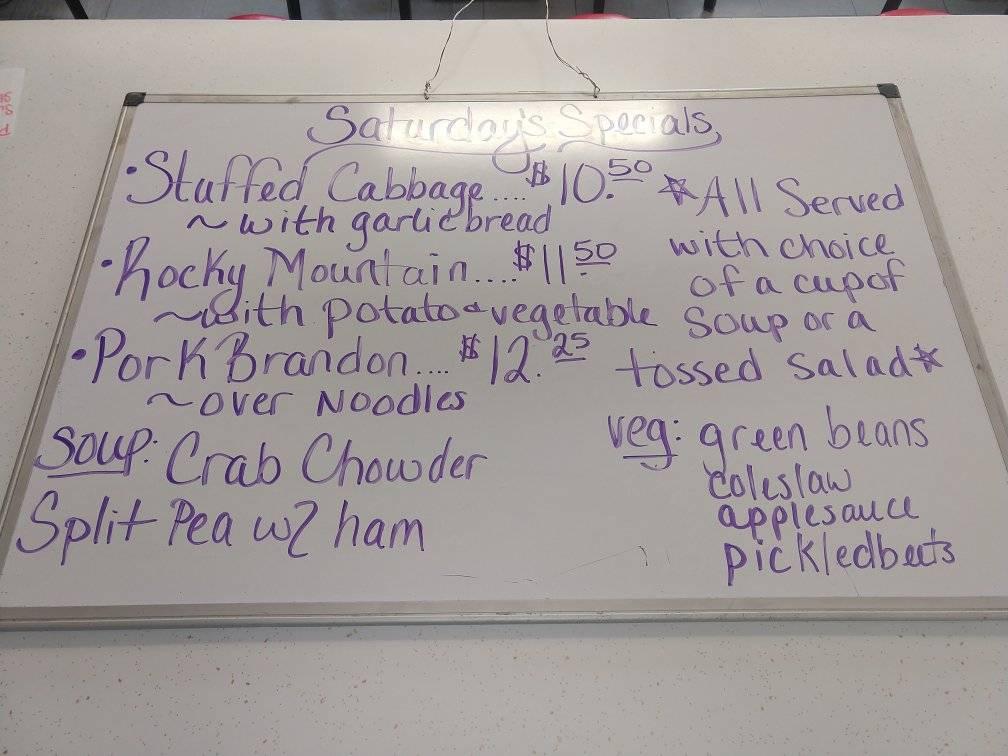 Saturday's Specials
• Stuffed Cabbage.... $10.50
~with garlic bread
• Rocky Mountain.... $11.50
~with potato & vegetable
• Pork Brandon.... $12.25
~over Noodles
*All Served
with choice
of a cup of
soup or a
tossed salad*
Soup: Crab Chowder
Split Pea w/ ham
veg: green beans
coleslaw
applesauce
pickled beets